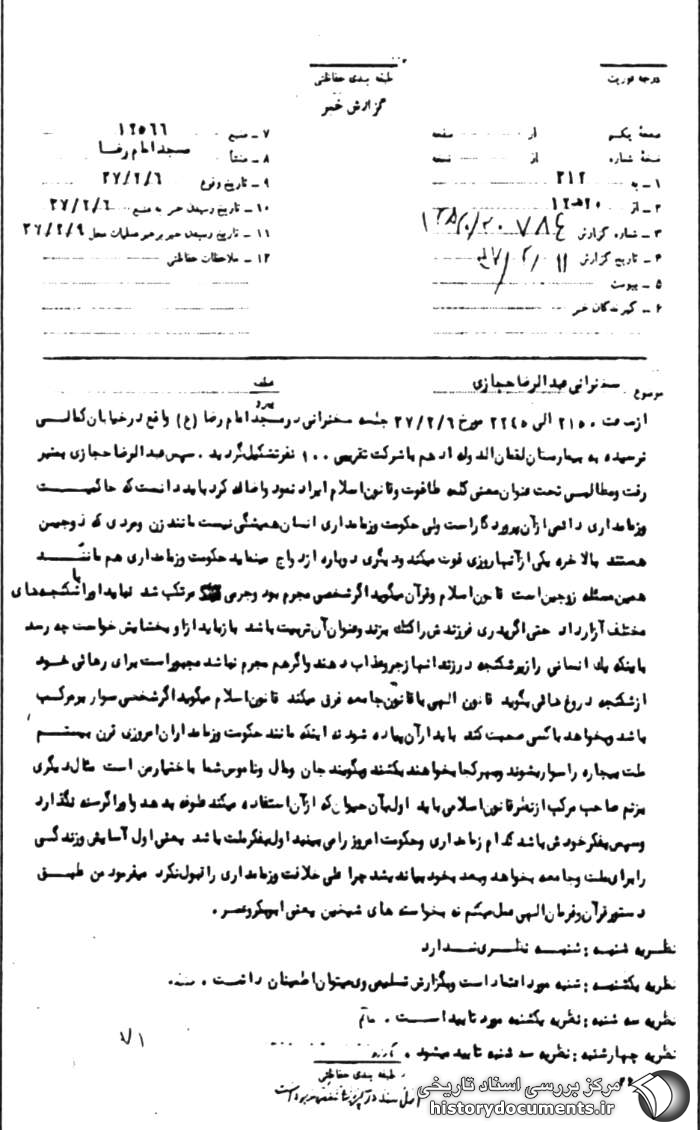 درجه فوریت
طبقه بندی حفاظتی
گزارش خبر
صفحهٔ یکم از صفحه
نسخهٔ شماره از نسخه
۱ ـ به ۳۱۲
۲ ـ از ۲۰ ه‍ ۱۲
۳ ـ شماره گزارش
۴ ـ تاریخ گزارش ۳۷/۲/۱۱
۵ ـ پیوست
۶ ـ گیرندگان خبر
۷ ـ منبع ۱۲۵۶۶
۸ ـ منشأ مسجد امام رضا
۹ ـ تاریخ وقوع ۳۷/۲/۶
۱۰ ـ تاریخ رسیدن خبر به منبع ۳۷/۲/۶
۱۱ ـ تاریخ رسیدن خبر برهبر عملیات محل ۳۶/۲/۹
۱۲ ـ ملاحظات حفاظتی
موضوع سخنرانی عبدالرضا حجازی
پیرو
ازساعت ۲۱۵۰ الی ۲۲۴۵ مورخ ۳۷/۲/۶ جلسه سخنرانی درمسجد امام رضا (ع) واقع درخیابان کمالی
نرسیده به بیمارستان لقمان الدوله ادهم با شرکت تقریبی ۱۰۰ نفرتشکیل گردید . سپس عبدالرضا حجازی بمنبر
رفت ومطالبی تحت عنوان معنی کلمه طاغوت وقانون اسلام ایراد نمود واضافه کرد باید دانست که حاکمیت
وزمامداری دائمی ازآن پروردگاراست ولی حکومت وزمامداری انسان همیشگی نیست مانند زن ومردی که زوجین
هستند بالاخره یکی ازآنها روزی فوت میکند ودیگری دوباره ازدواج مینماید حکومت وزمامداری هم مانند
همین مسئله زوجین است قانون اسلام وقرآن میگوید اگرشخصی مجرم بود وجرمی مرتکب شد نباید اورا با شکنجه‌های
مختلف آزارداد حتی اگرپدری فرزندش را کتک بزند وعنوان آن تربیت باشد بازباید ازاو بخشایش خواست چه رسد
باینکه یک انسانی را زیرشکنجه درزندانها زجروعذاب دهند واگرهم مجرم نباشد مجبوراست برای رهائی خود
ازشکنجه دروغ هائی بگوید قانون الهی با قانون جامعه فرق میکند قانون اسلام میگوید اگرشخصی سوار برمرکب
باشد وبخواهد با کسی صحبت کند باید ازآن پیاده شود نه اینکه مانند حکومت وزمامداران امروزی قرن بیستم
ملت بیچاره را سوار بشوند وبهرکجا بخواهند بکشند وبگویند جان ومال وناموس شما با اختیارمن است مثال دیگری
بزنم صاحب مرکب ازنظرقانون اسلامی باید اول بآن حیوان که ازآن استفاده میکند علوفه بدهد واورا گرسنه نگذارد
وسپس بفکرخودش باشد کدام زمامداری وحکومت امروز را می بینید اول بفکرملت باشد یعنی اول آسایش وزندگی
را برای ملت وجامعه بخواهد وبعد بخود بیاندیشد چرا علی خلافت وزمامداری را قبول نکرد میفرمود من طبق
دستور قرآن وفرمان الهی عمل میکنم نه بخواسته های شیخین یعنی ابوبکروعمر .
نظریه شنبه : شنبه نظری ندارد
نظریه یکشنبه : شنبه مورد اعتماد است وبگزارش تسلیمی وی میتوان اطمینان داشت .
نظریه سه شنبه : نظریه یکشنبه مورد تایید است .
نظریه چهارشنبه : نظریه سه شنبه تایید میشود .
۷۱
طبقه بندی حفاظتی
اصل سند در
مرکز بررسی اسناد تاریخی
historydocuments.ir